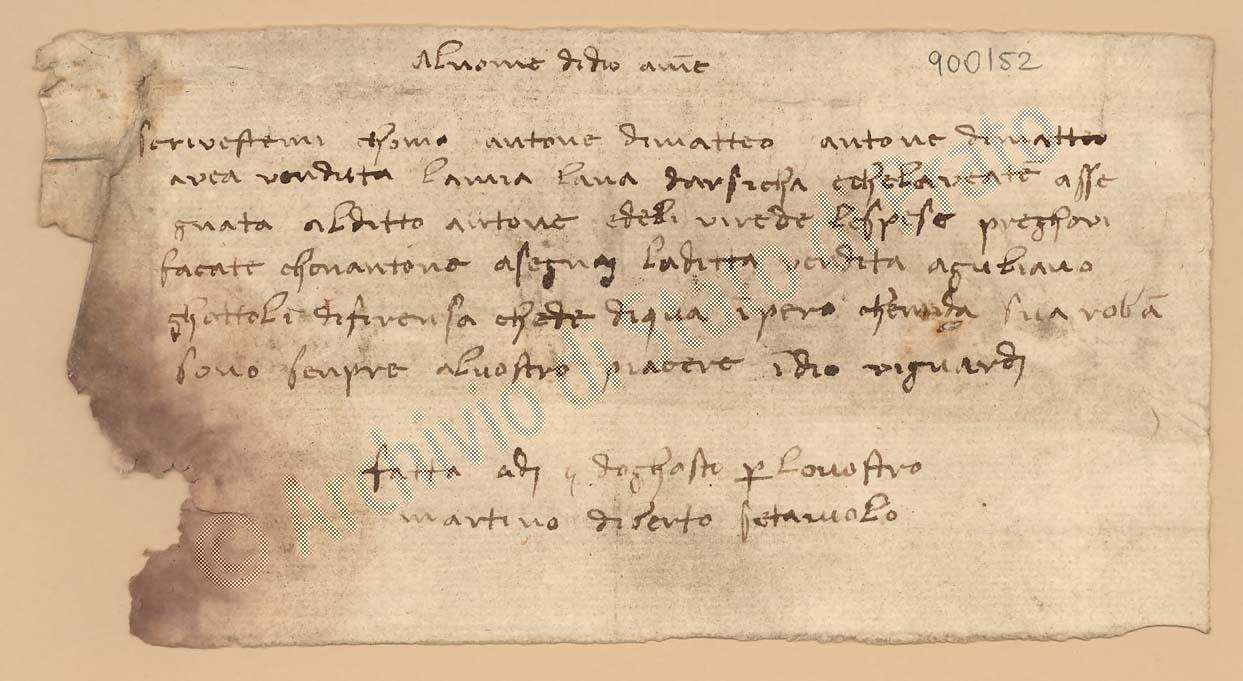 Al nome didio ame
900/52
scrivestemi chomo antone dimatteo antone dimatteo
avea venduta lamia lana darsicha echelaveate asse
gnata alditto antone edebi virede lespese preghovi
facate chenantone asegni laditta vendita agubiano
ghattoli difirensa chede diqua ipero chenonda sua roba
sono senpre alvostro piacere idio viguardi
fatta adi doghosto p lovostro
martino diberto setaiuolo
© Archivio di Stato di Prato